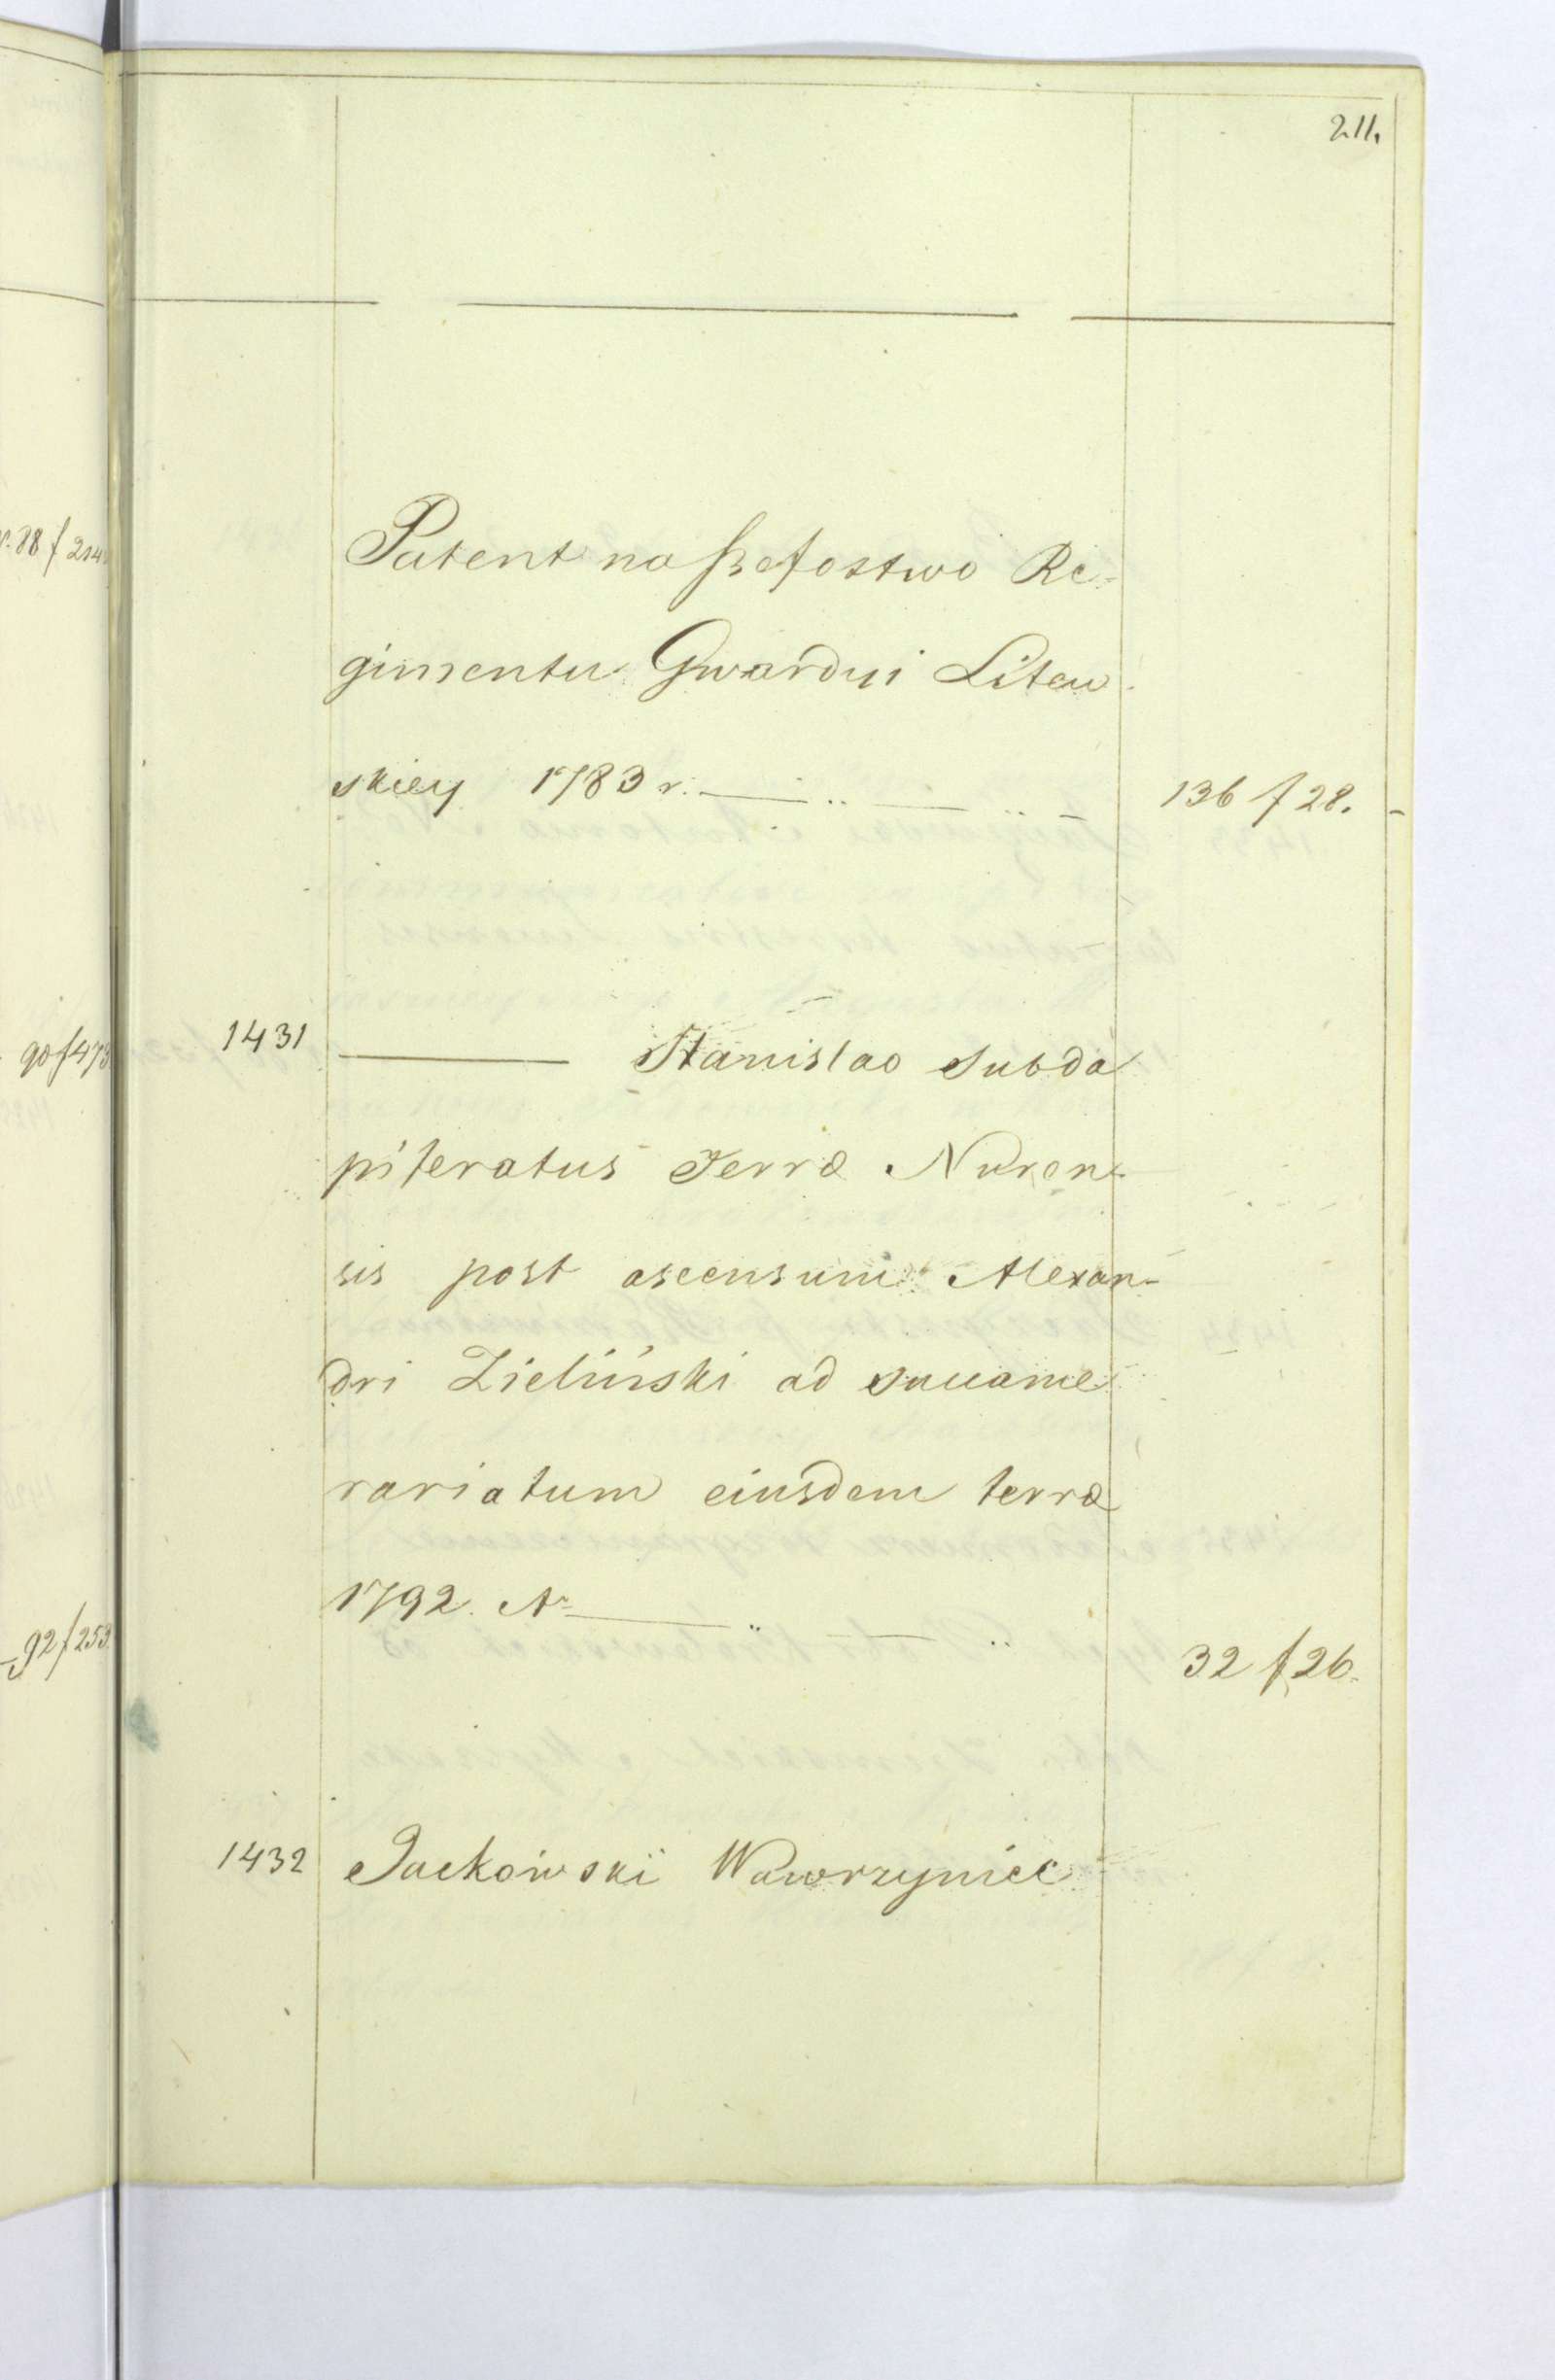 211.
Patent na Szefostwo Re-
gimentu Gwardyi Litew-
skiey 1783 r. 136 f 28.
1431 ——— Stanislao Subda
piferatus Terræ Nuren-
sis post ascensum Alexan-
dri Zieliński ad Succame
rariatum eiusdem terræ
1792. A°
32 f 26.
1432 Jackowski Wawrzyniec
90 f 473
92 f 253